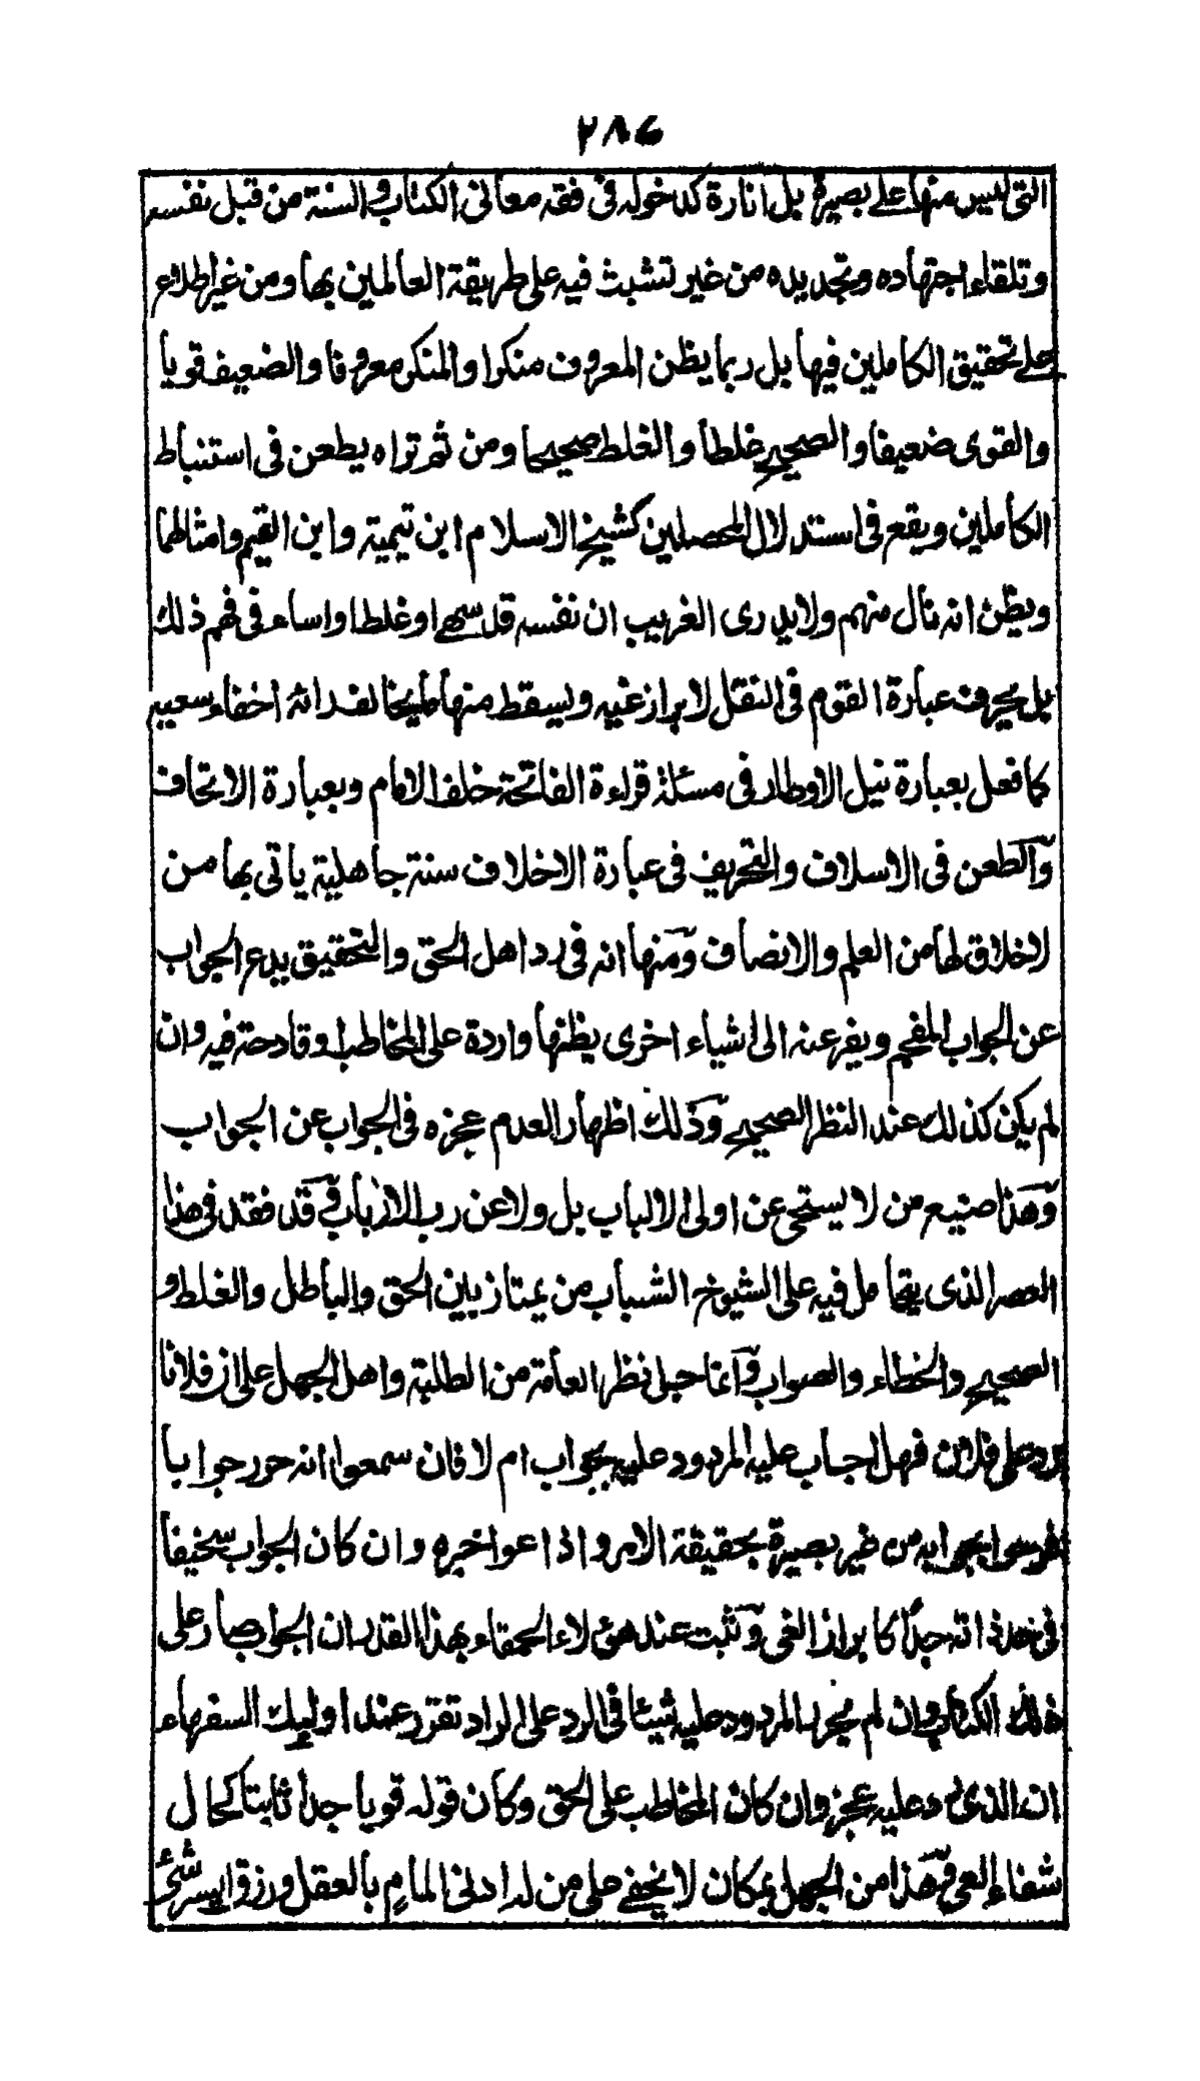 ٢٨٦
التى ليس منها على بصيرة بل انارة كدخوله فى فقه معانى الكتاب والسنة من قبل نفسه
وتلقاء اجتهاده وتجديده من غير تشبث فيه على طريقة العالمين بها ومن غير اطلاع
على تحقيق الكاملين فيها بل ربما يظن المعروف منكرا والمنكر معروفا والضعيف قويا
والقوى ضعيفا والصحيح غلطا والغلط صحيحا ومن ثم تراه يطعن فى استنباط
الكاملين ويقع فى استدلال المحصلين كشيخ الاسلام ابن تيمية وابن القيم وامثالهما
ويظن انه نال منهم ولا يدرى الغريب ان نفسه قد سهى او غلط او اساء فى فهم ذلك
بل يحرف عبارة القوم فى النقل لابراز غيه ويسقط منها ما يخالفه اخفاء سعيه
كما فعل بعبارة نيل الاوطار فى مسئلة قراءة الفاتحة خلف الامام وبعبارة الاتحاف
والطعن فى الاسلاف والتحريف فى عبارة الاخلاف سنة جاهلية ياتى بها من
لا خلاق لها من العلم والانصاف ومنها انه فى رد اهل الحق والتحقيق يدع الجواب
عن الجواب المفحم ويفر عنه الى اشياء اخرى يظنها واردة على المخاطب وقادحة فيه وان
لم يكن كذلك عند النظر الصحيح وذلك اظهار العدم عجزه فى الجواب عن الجواب
وهذا صنيع من لا يستحى عن اولى الالباب بل ولا عن رب الارباب وقد فقد فى هذا
العصر الذى يتحامل فيه على الشيوخ الشباب من يمتاز بين الحق والباطل والغلط و
الصحيح والخطاء والصواب وانما حبل نظر العامة من الطلبة واهل الجهل على ان فلانا
رد على فلان فهل اجاب عليه المردود عليه بجواب ام لا فان سمعوا انه حرر جوابا
فرحوا بجوابه من غير بصيرة بحقيقة الامر واذاعوا خبره وان كان الجواب سخيفا
فى حد ذاته جدا كابراز الغى وتثبت عند هؤلاء الحمقاء بهذا القدر ان الجواب صار على
ذلك الكتاب وان لم يحرر المردود عليه شيئا فى الرد على الراد تقرر عند اولئك السفهاء
ان الذى رد عليه عجز وان كان المخاطب على الحق وكان قوله قويا جدا ثابتا كحال
شفاء العى وهذا من الجهل بمكان لا يخفى على من له ادنى المام بالعقل ورزق ايسر شئ